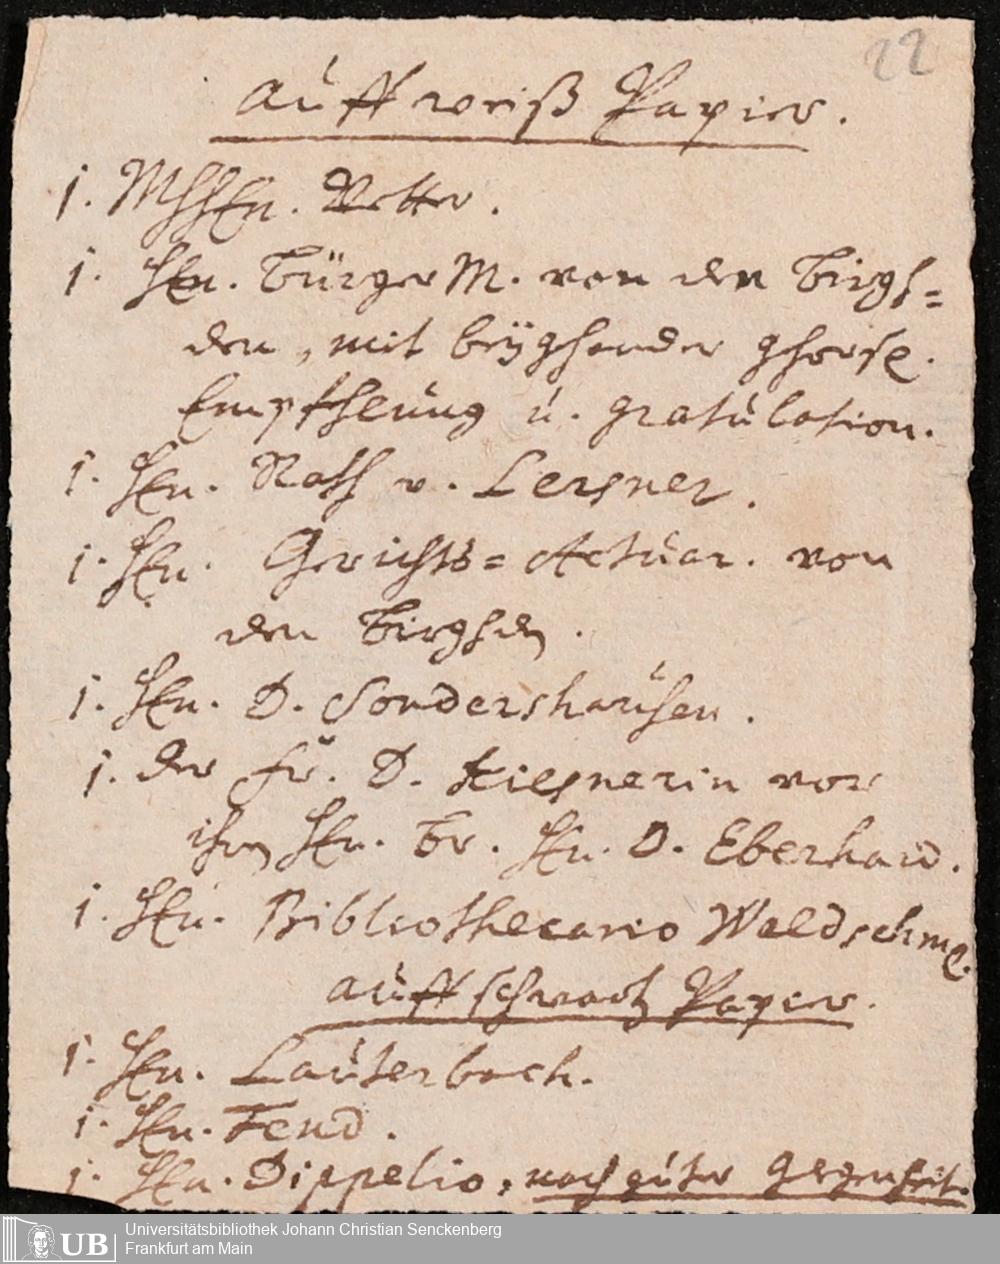 22
auff weiß Papier.
1. MHHEn. Vetter.
1. HEn. BürgerM. von den Birgh=
den, mit beÿgehender ghors.
Empfhelung u. gratulation.
1. HEn. Rath v. Lersner.
1. HEn. Gerichts=Actuar. von
den Birghden.
1. HEn. D. Sondershausen.
1. der Fr. D. Kiesnerin vor
ihren HEn. Br. HEn. D. Eberhard.
1. HEn. Bibliothecario Waldschm.
auff schwartz Papier.
1. HEn. Lauterbach.
1. HEn. Fend.
1. HEn. Dippelio, nach guter
UB Universitätsbibliothek Johann Christian Senckenberg
Frankfurt am Main